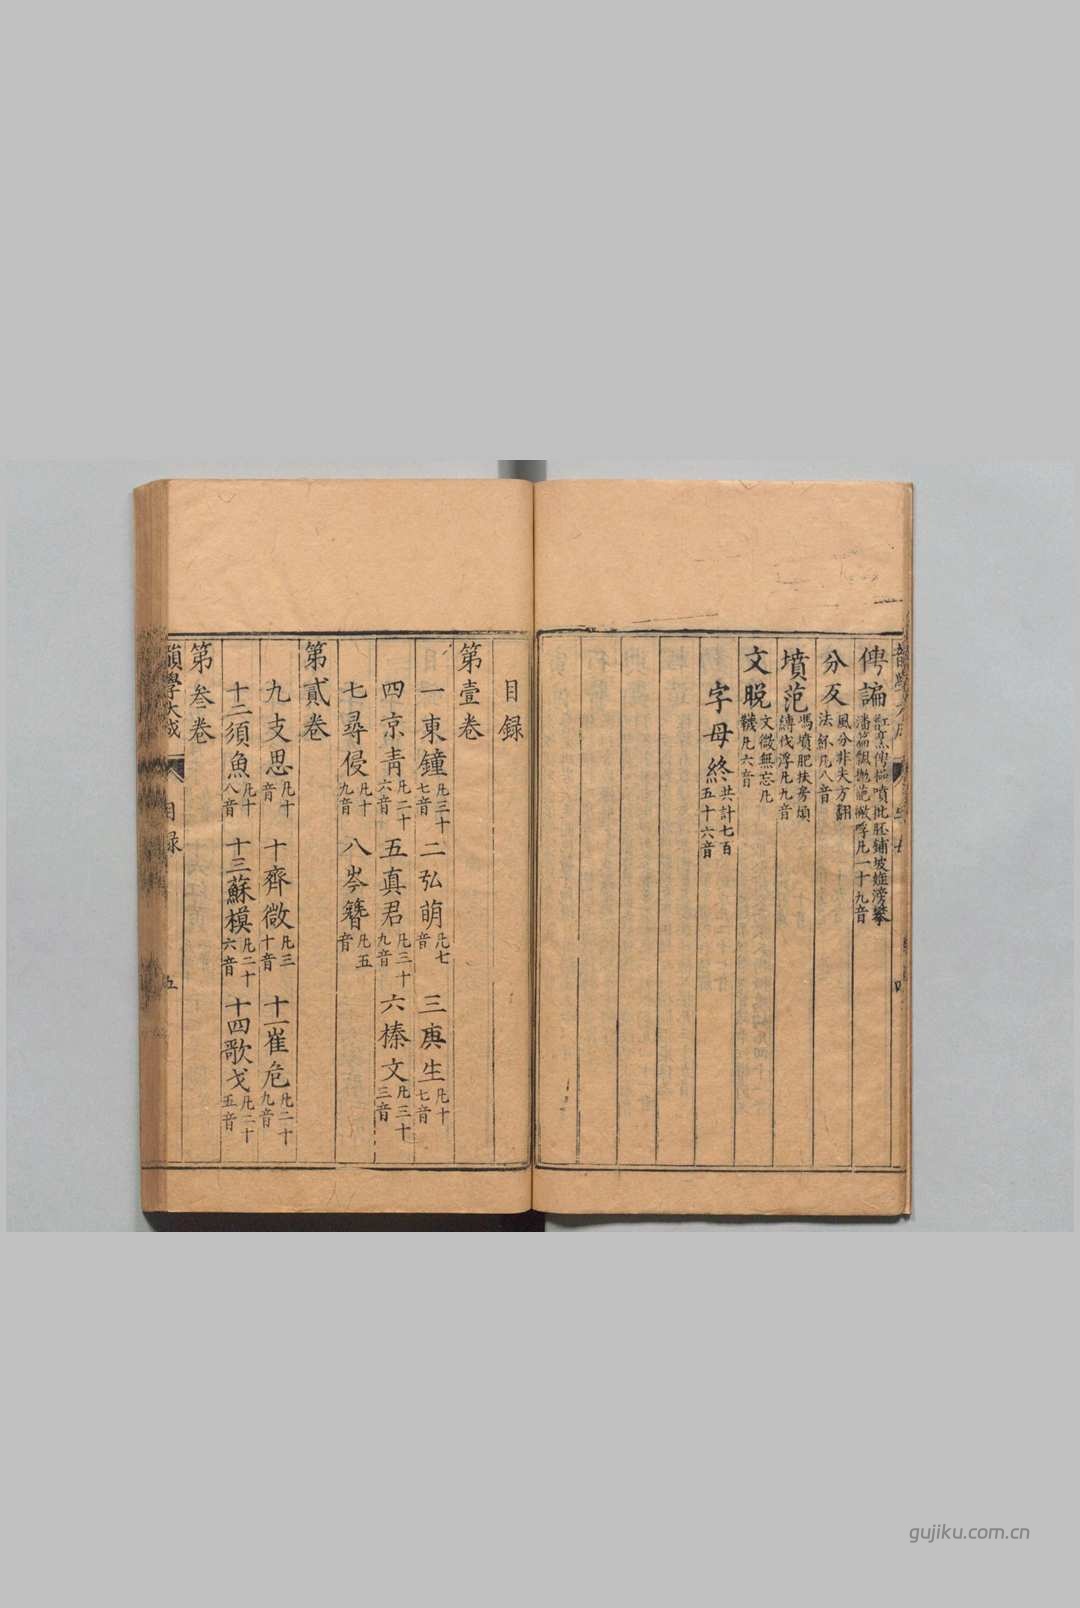 俜論
分反 風分非夫方翻法缶凡八音
墳范 馮墳肥扶房煩縛伐浮凡九音
文晚 文微無忘凡韈凡六音
字母終 共計七百五十六音
目录
第壹卷
一東鐘 凡三十七音 二弘萌 凡七音 三庚生 凡十七音
四京青 凡二十六音 五真君 凡三十九音 六榛文 凡三十三音
七尋侵 凡十九音 八岑簪 凡五音
第貳卷
九支思 凡十音 十齊微 凡三十音 十一崔危 凡二十九音
十二須魚 凡十八音 十三蘇模 凡二十六音 十四歌戈 凡二十五音
第叄卷
韻學大成 目录 五
gujiku.com.cn